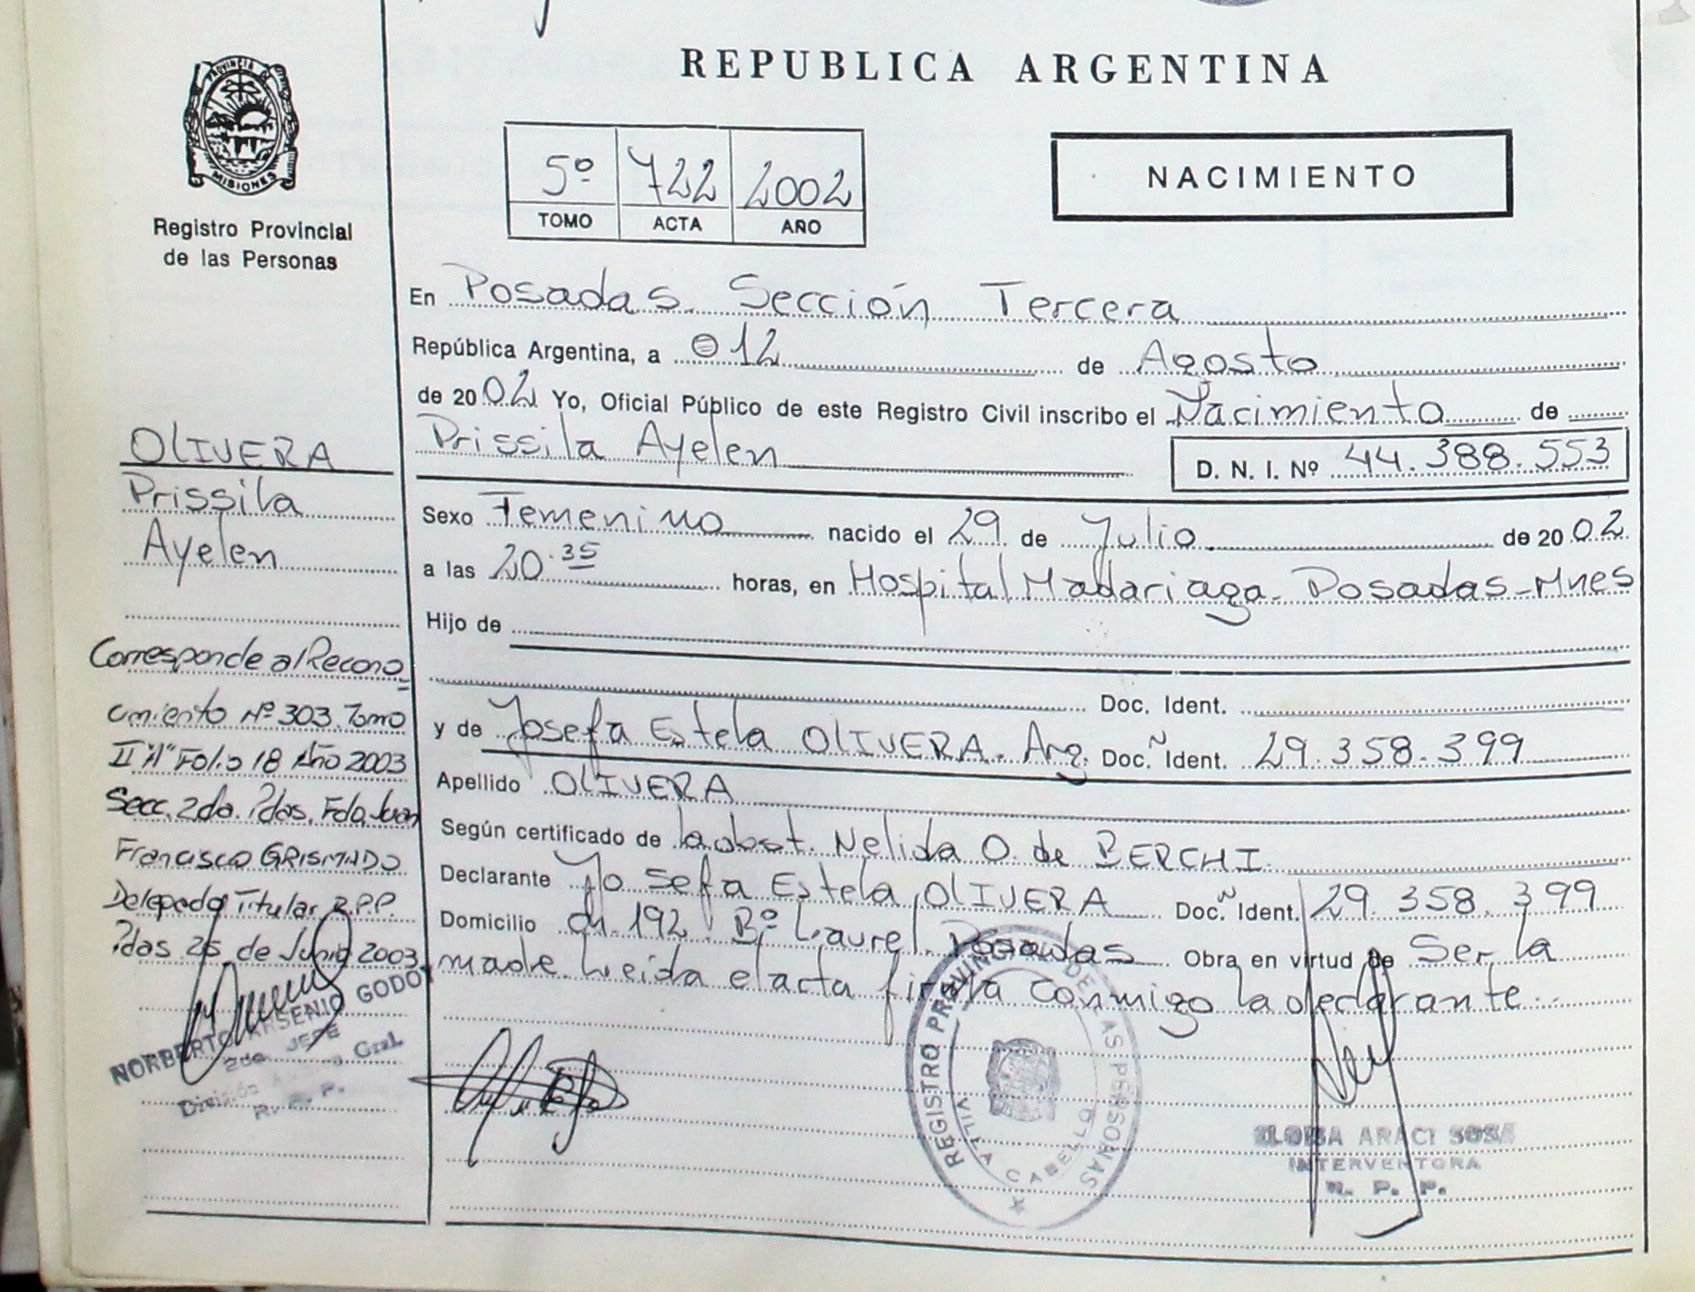 PROVINCIA DE
MISIONES
Registro Provincial
de las Personas
REPUBLICA ARGENTINA
5º 722 2002
TOMO ACTA AÑO
NACIMIENTO
En Posadas. Sección Tercera
República Argentina, a 12 de Agosto
de 2002 Yo, Oficial Público de este Registro Civil inscribo el Nacimiento de
Prissila Ayelen
D. N. I. Nº 44.388.553
Sexo Femenino nacido el 29 de Julio de 2002
a las 20.35 horas, en Hospital Madariaga. Posadas-Mnes
Hijo de
Doc. Ident.
y de Josefa Estela OLIVERA. Arg. Doc. Ident. 29.358.399
Apellido OLIVERA
Según certificado de la obst. Nelida O. de BERCHI.
Declarante Josefa Estela OLIVERA Doc. Ident. 29.358.399
Domicilio ch. 192. Bº Laurel. Posadas Obra en virtud de Ser la
madre Leida el acta firma conmigo la declarante.
OLIVERA
Prissila
Ayelen
Corresponde al Recono
cimiento Nº 303. Tomo
II "A" Folio 18 Año 2003
Secc. 2da. Pdas. Fdo. Juan
Francisco GRISMADO
Delegado Titular R.P.P.
Pdas 25 de Junio 2003.
NORBERTO ARSENIO GODOY
2do. JEFE
División Gral.
R. P. P.
REGISTRO PROVINCIAL DE LAS PERSONAS
VILLA CABELLO
ELOISA ARACI SOSA
INTERVENTORA
R. P. P.